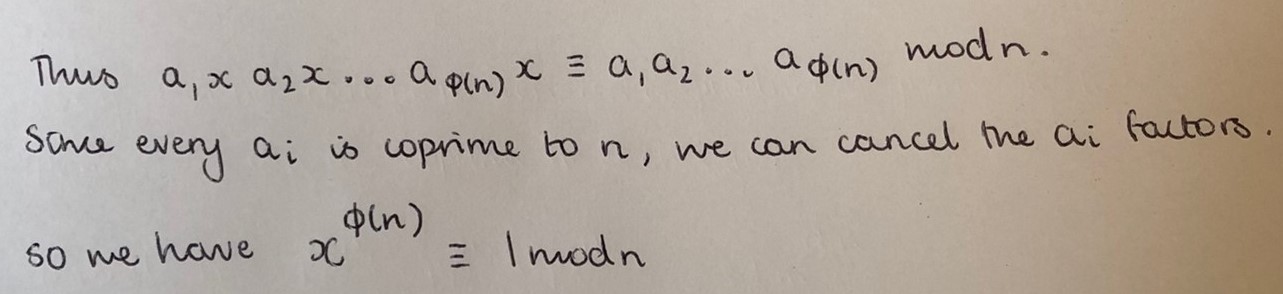 Thus a₁x a₂x ... a_φ(n) x ≡ a₁a₂... a_φ(n) mod n.
Since every aᵢ is coprime to n, we can cancel the aᵢ factors.
so we have x^φ(n) ≡ 1 mod n